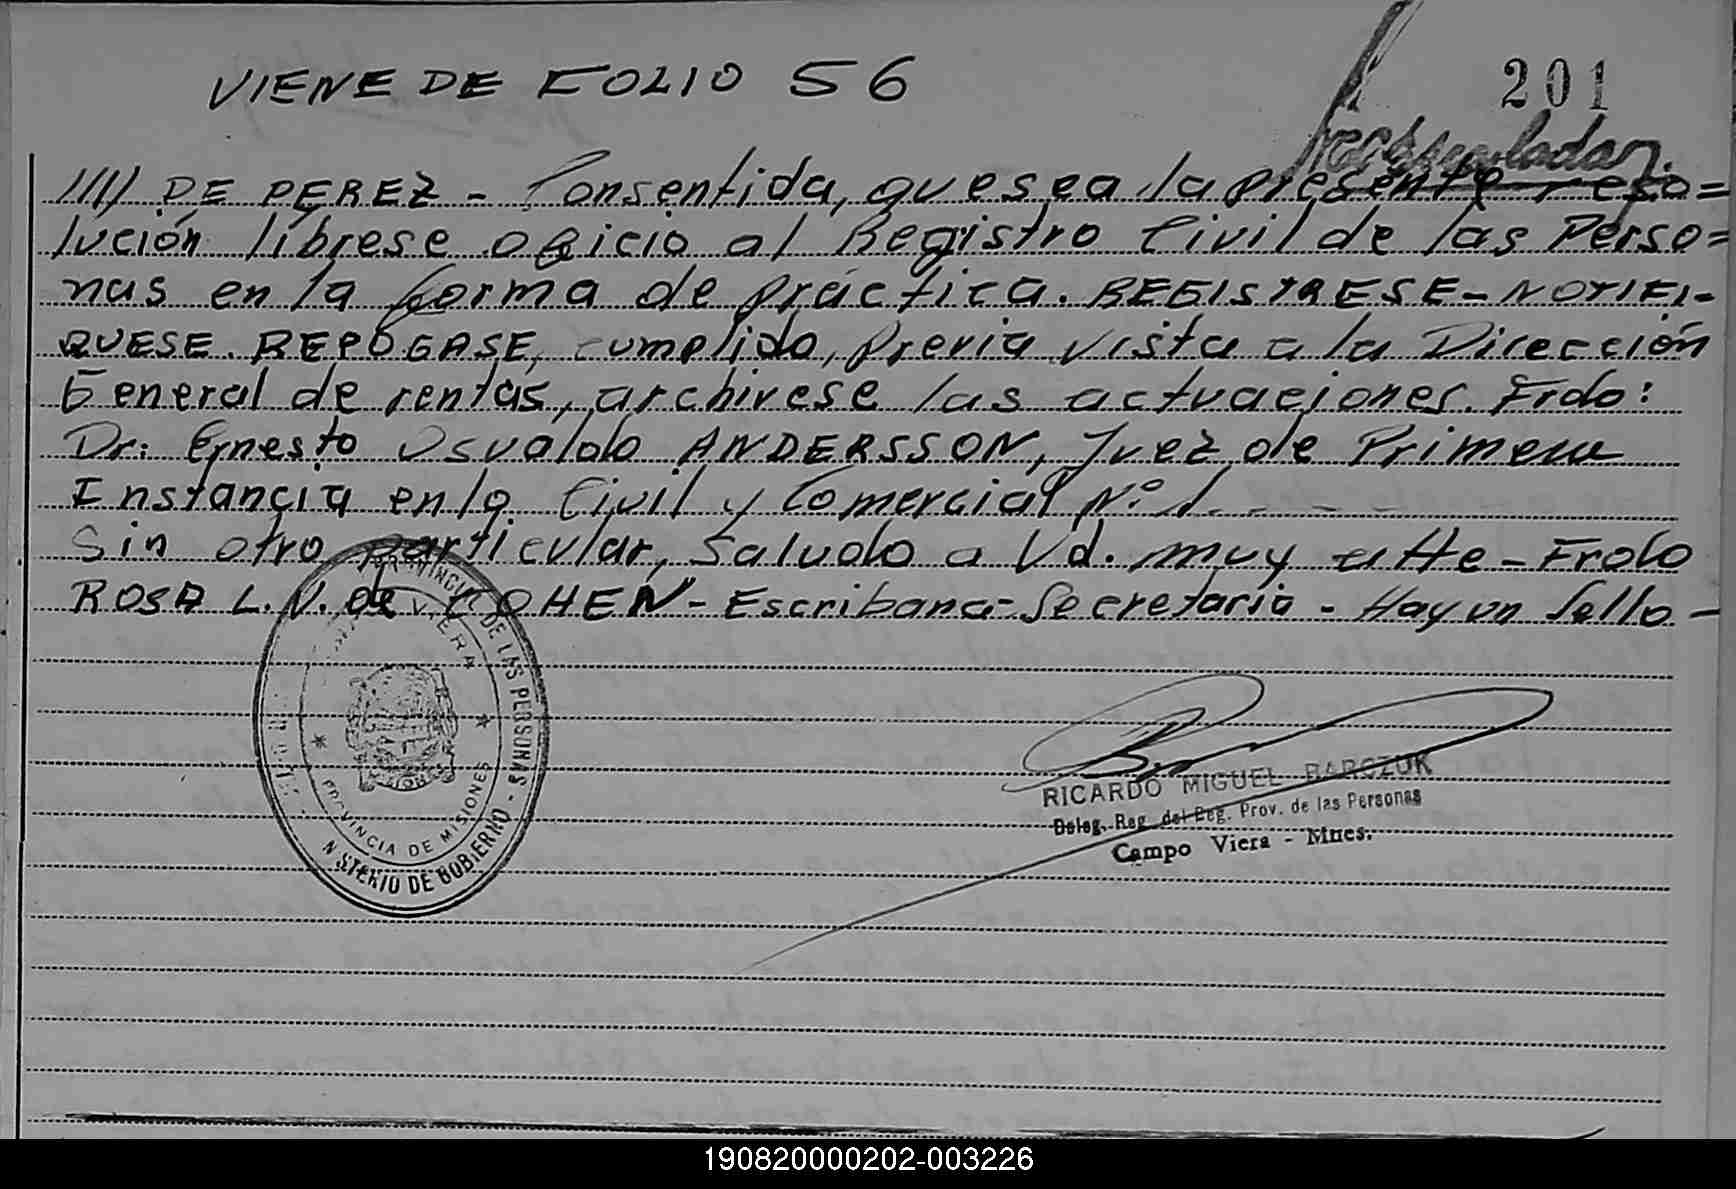 VIENE DE FOLIO 56
201
//// DE PEREZ - Consentida, que sea la presente reso=
lución líbrese oficio al Registro Civil de las Perso=
nas en la forma de práctica. REGISTRESE - NOTIFI-
QUESE. REPÓGASE, cumplido, previa vista a la Dirección
General de rentas, archivese las actuaciones. Frdo:
Dr: Ernesto Osvaldo ANDERSSON, Juez de Primera
Instancia en lo Civil y Comercial Nº 1. - - - -
Sin otro particular, saludo a Vd. muy atte - Frdo
ROSA L. N. de COHEN - Escribana - Secretaria - Hay un Sello -
DE LAS PERSONAS -
PROVINCIA DE MISIONES
DE GOBIERNO
RICARDO MIGUEL BARCZUK
Deleg. Reg. del Reg. Prov. de las Personas
Campo Viera - Mnes.
190820000202-003226